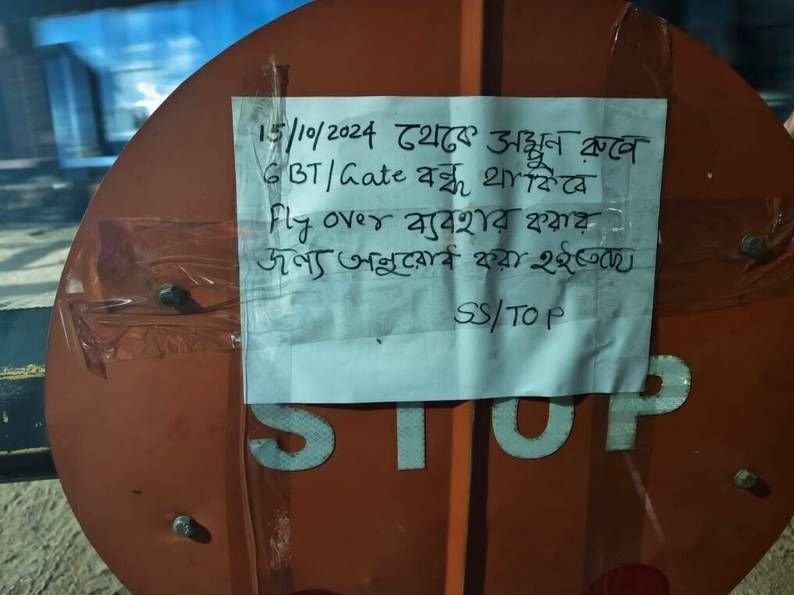 15/10/2024 থেকে সম্পুর্ন রুপে
GBT/Gate বন্ধ থাকিবে
Fly over ব্যবহার করার
জন্য অনুরোধ করা হইতেছে
SS/TOP
STOP